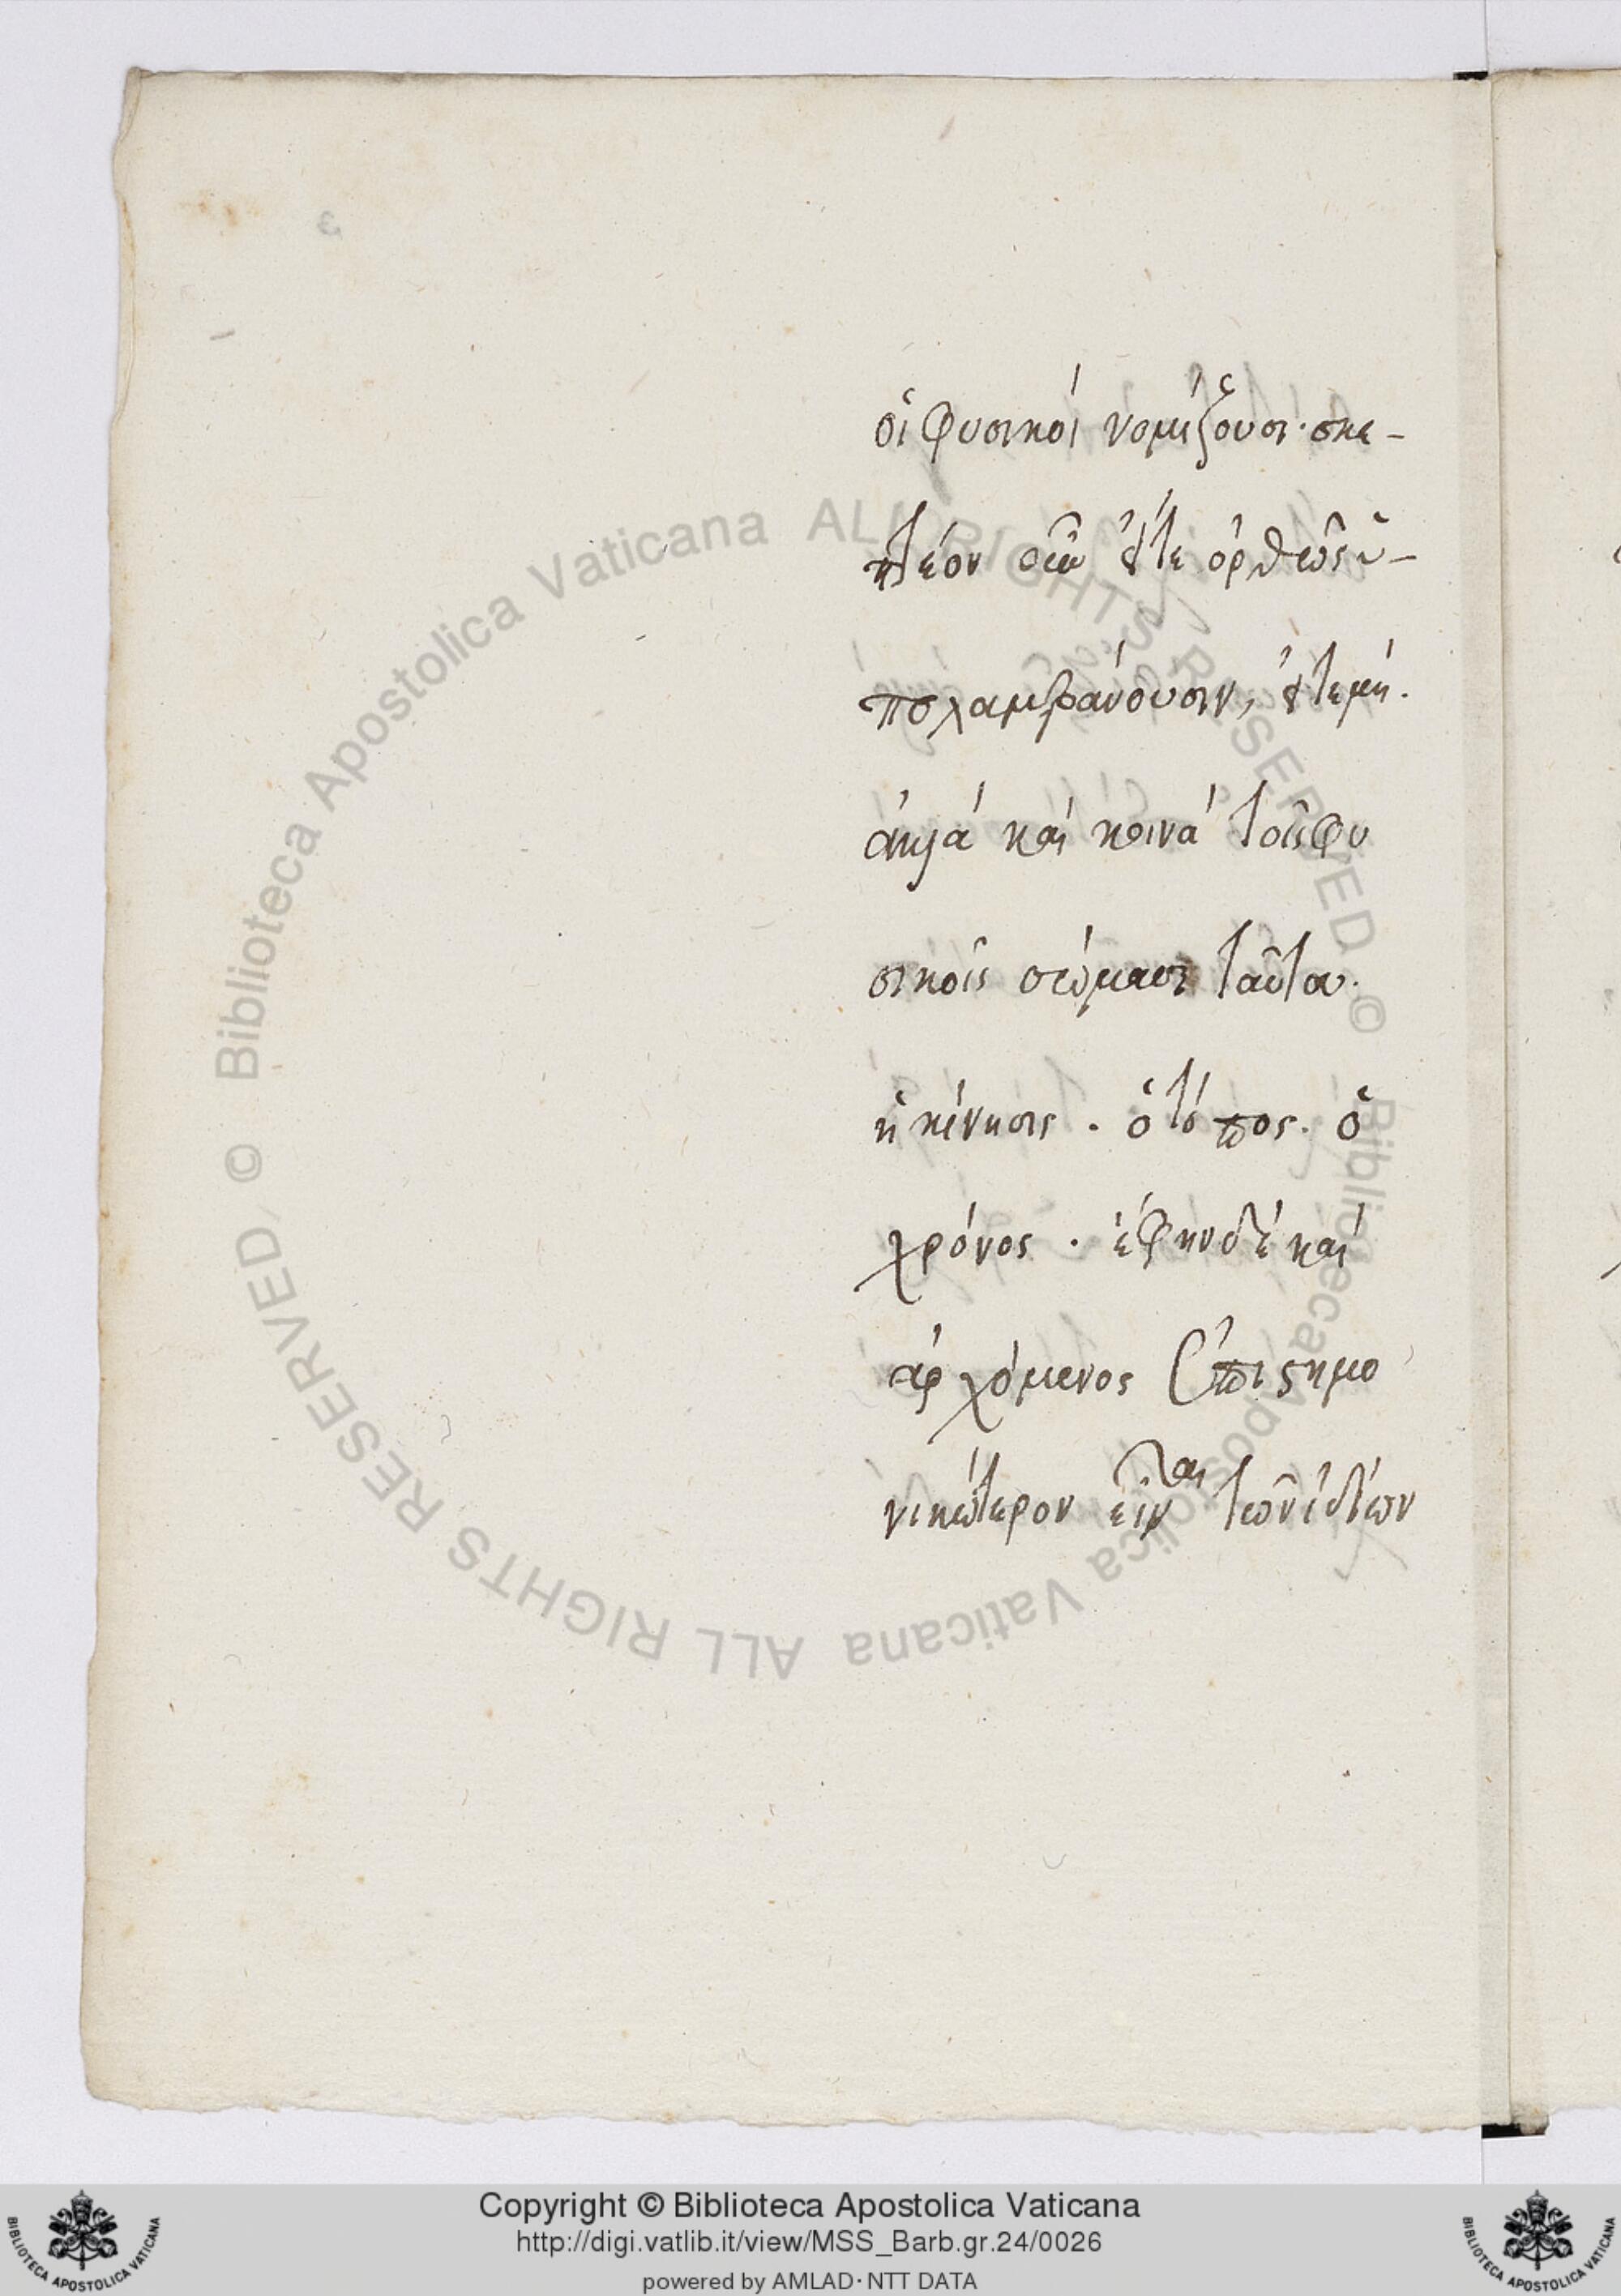 οἱ φυσικοί νομίζουσι· σκε-
πτέον οὖν εἴτε ὀρθῶς ὑ-
πολαμβάνουσιν, εἴτε μή.
καὶ κοινὰ τοῖς φυ
σικοῖς σώμασι ταῦτα.
ἡ κίνησις . ὁ τόπος. ὁ
χρόνος . ἔφην δέ καὶ
ἀρχόμενος ἐπιστημο
νικώτερον εἶναι τῶν ἰδίων
© Biblioteca Apostolica Vaticana ALL RIGHTS RESERVED © Biblioteca Apostolica Vaticana ALL RIGHTS RESERVED
Copyright © Biblioteca Apostolica Vaticana
http://digi.vatlib.it/view/MSS_Barb.gr.24/0026
powered by AMLAD · NTT DATA
BIBLIOTECA APOSTOLICA VATICANA
BIBLIOTECA APOSTOLICA VATICANA